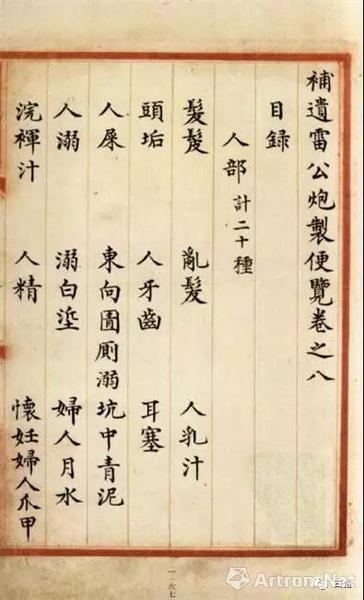 補遺雷公炮製便覽卷之八
目録
人部 計二十種
髮髲 亂髮 人乳汁
頭垢 人牙齒 耳塞
人屎 東向圊厠溺坑中青泥
人溺 溺白垽 婦人月水
浣褌汁 人精 懷妊婦人爪甲
一一六七
Artron.Net